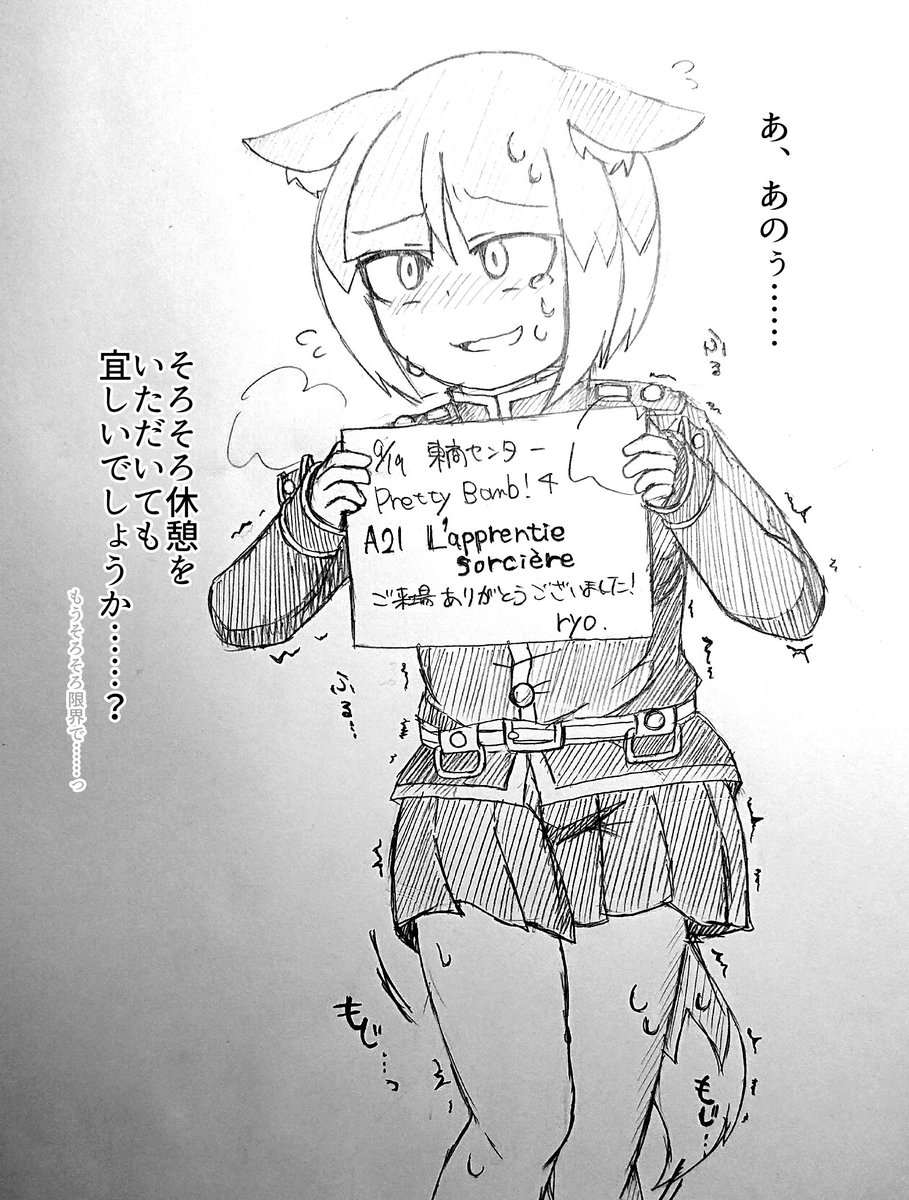 あ、あのぅ……
ふる
9/19 東商センター
Pretty Bomb! 4
A21 L'apprentie
sorcière
ご来場ありがとうございました!
ryo.
そろそろ休憩を
いただいても
宜しいでしょうか……?
もうそろそろ限界で……っ
ふる…
もじ…っ
もじ…